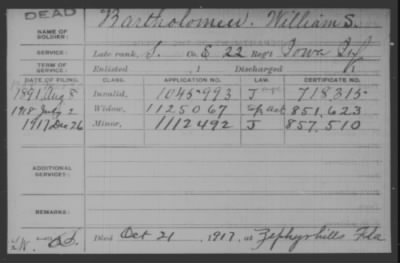 DEAD
NAME OF SOLDIER: Bartholomew. William S.
SERVICE: Late rank, S. Co. E 22 Reg't Iowa Inf
TERM OF SERVICE: Enlisted , 1 Discharged , 1
DATE OF FILING. CLASS. APPLICATION NO. LAW. CERTIFICATE NO.
1891 Aug 8 Invalid, 1045993 J 718,315
1918 July 2 Widow, 1125067 851,623
1917 Dec 26 Minor, 1112492 J 857,510
ADDITIONAL SERVICES:
REMARKS:
Died Oct 21, 1917, at Zephyrhills Fla